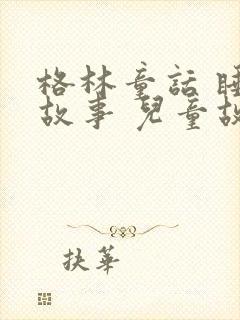 格林童話 睡
故事 兒童故
扶華